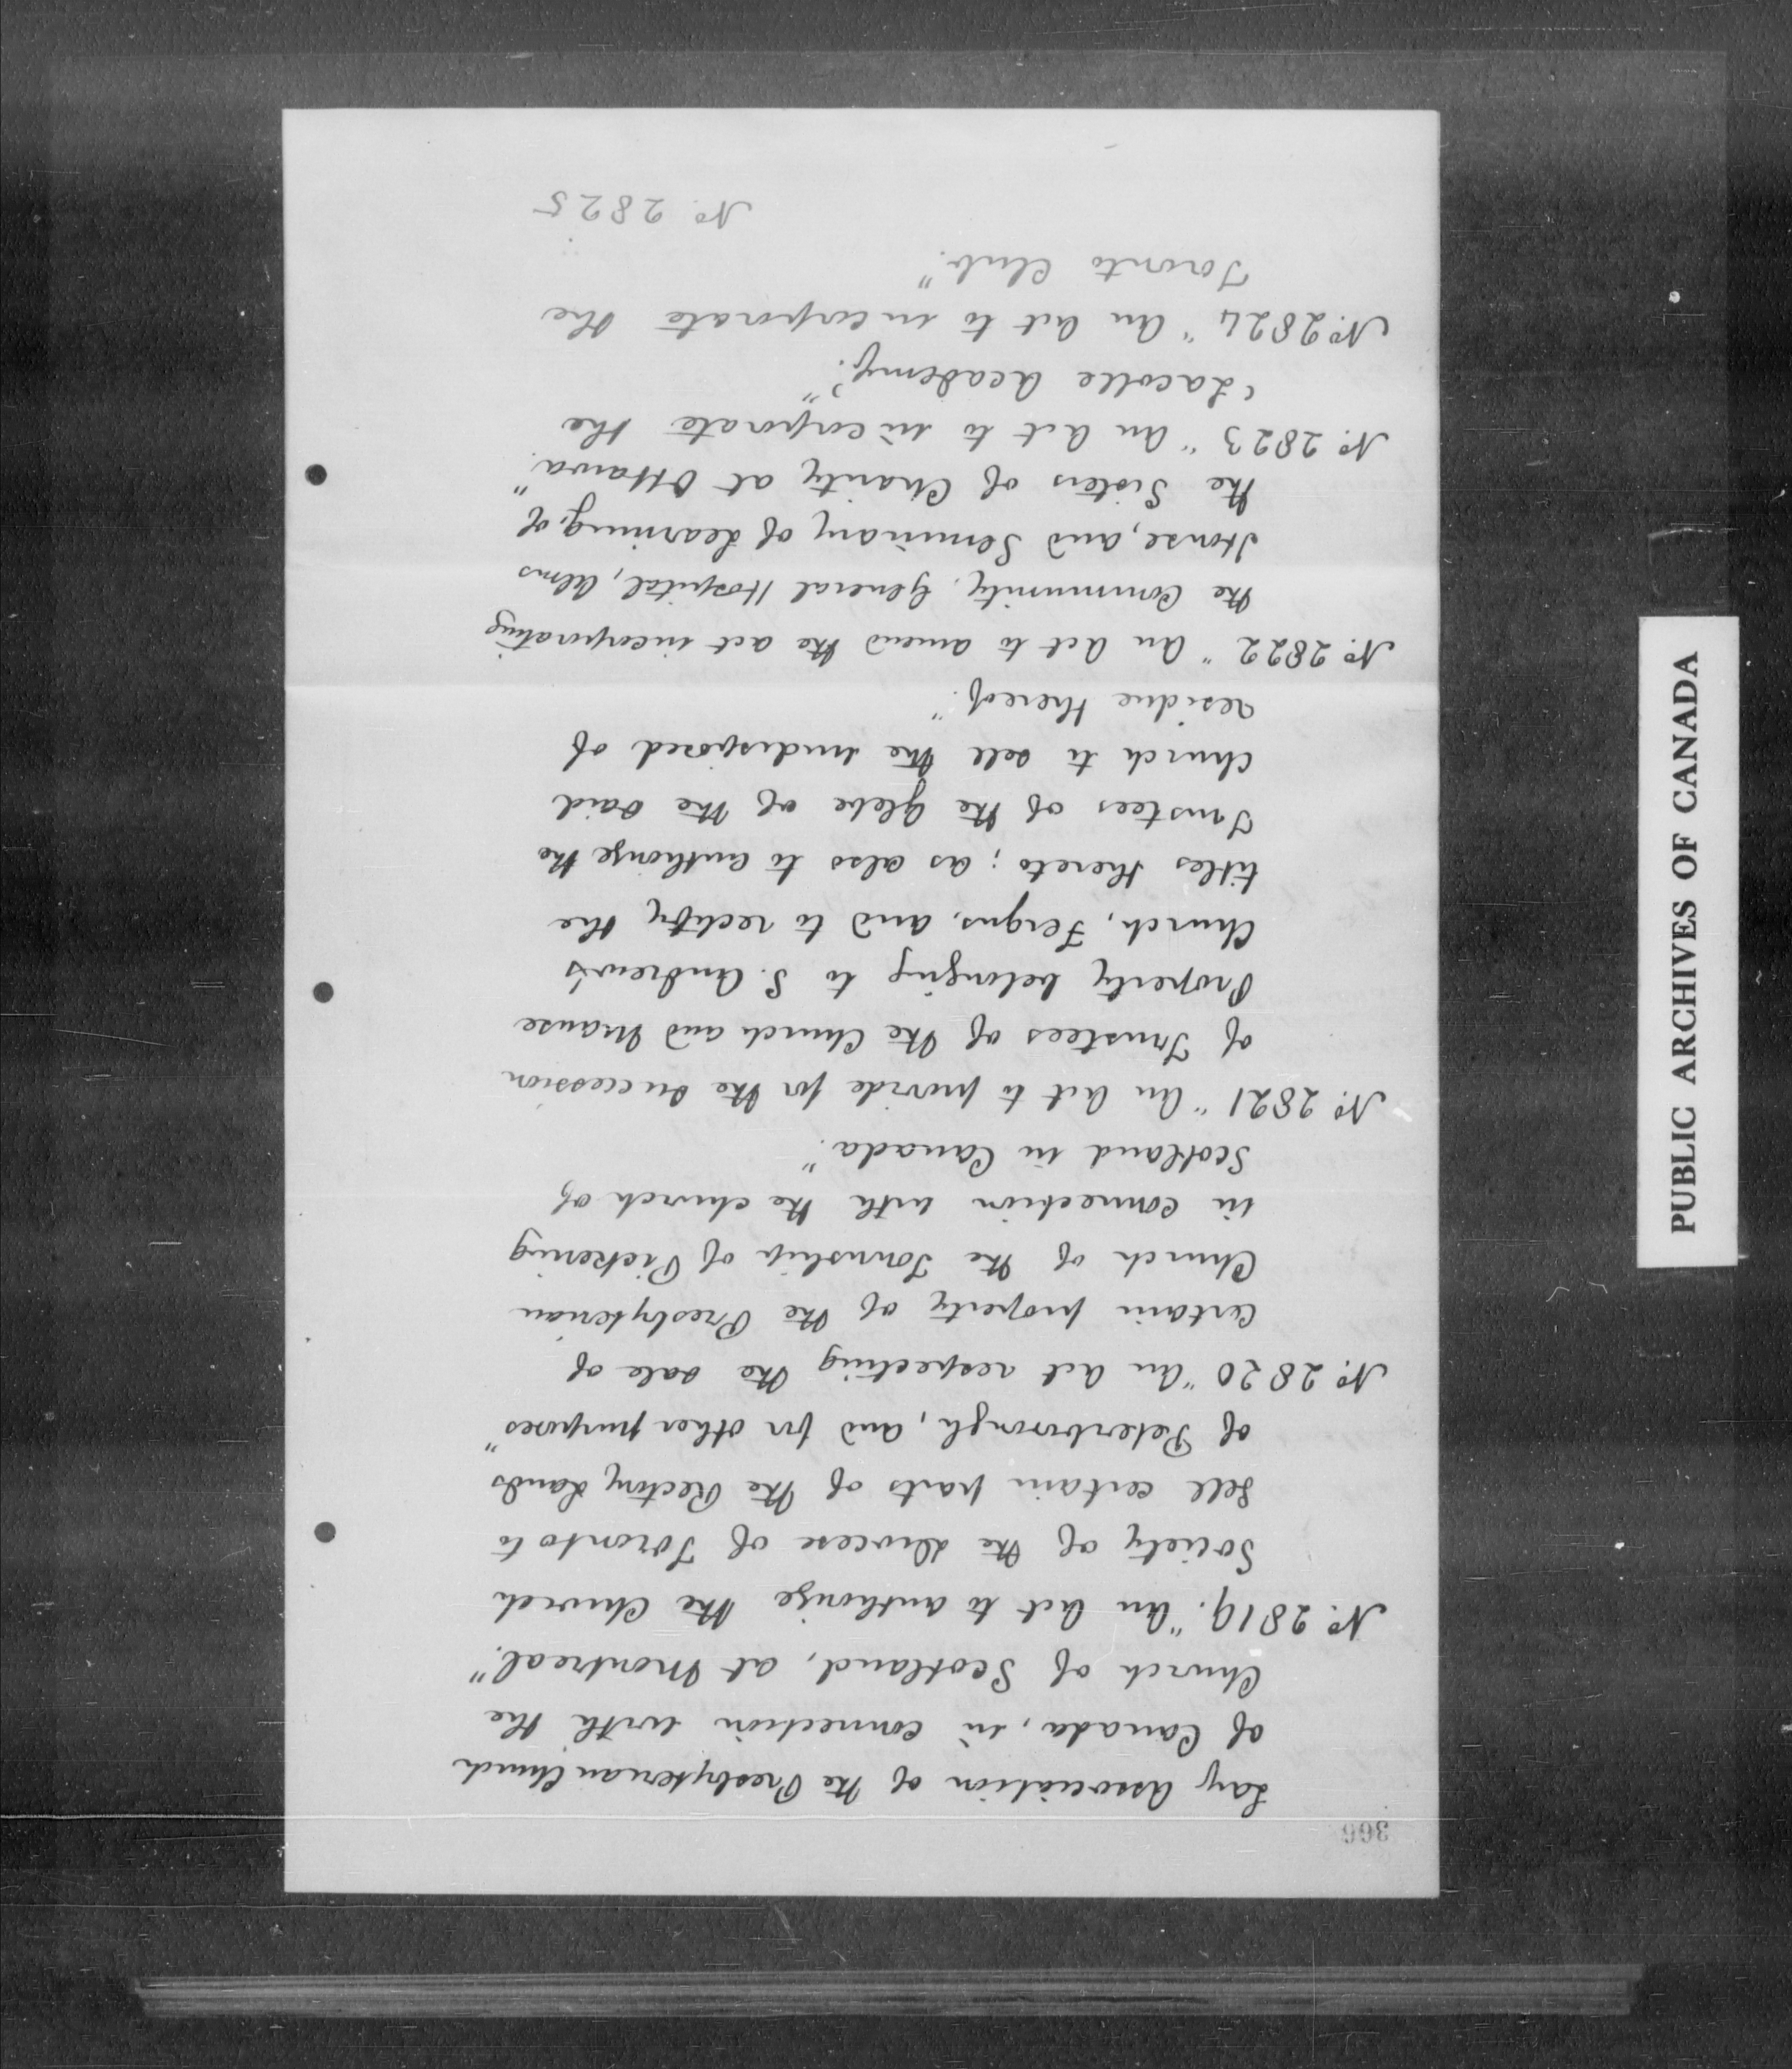 366
Lay Association of the Presbyterian Church
of Canada, in connection with the
Church of Scotland, at Montreal."
No. 2819. "An Act to authorize the Church
Society of the Diocese of Toronto to
sell certain parts of the Rectory Lands
of Peterborough, and for other purposes"
No. 2820 "An Act respecting the sale of
certain property of the Presbyterian
Church of the Township of Pickering
in connection with the church of
Scotland in Canada."
No. 2821 "An Act to provide for the succession
of Trustees of the Church and Manse
Property belonging to S. Andrew's
Church, Fergus, and to rectify the
titles thereto; as also to authorize the
Trustees of the Glebe of the said
church to sell the undisposed of
residue thereof."
No. 2822 "An Act to amend the act incorporating
the Community, General Hospital, Alms
House, and Seminary of Learning, of
the Sisters of Charity at Ottawa."
No. 2823 "An Act to incorporate the
'Lacolle Academy.'"
No. 2824 "An Act to incorporate the
Toronto Club."
No. 2825
PUBLIC ARCHIVES OF CANADA